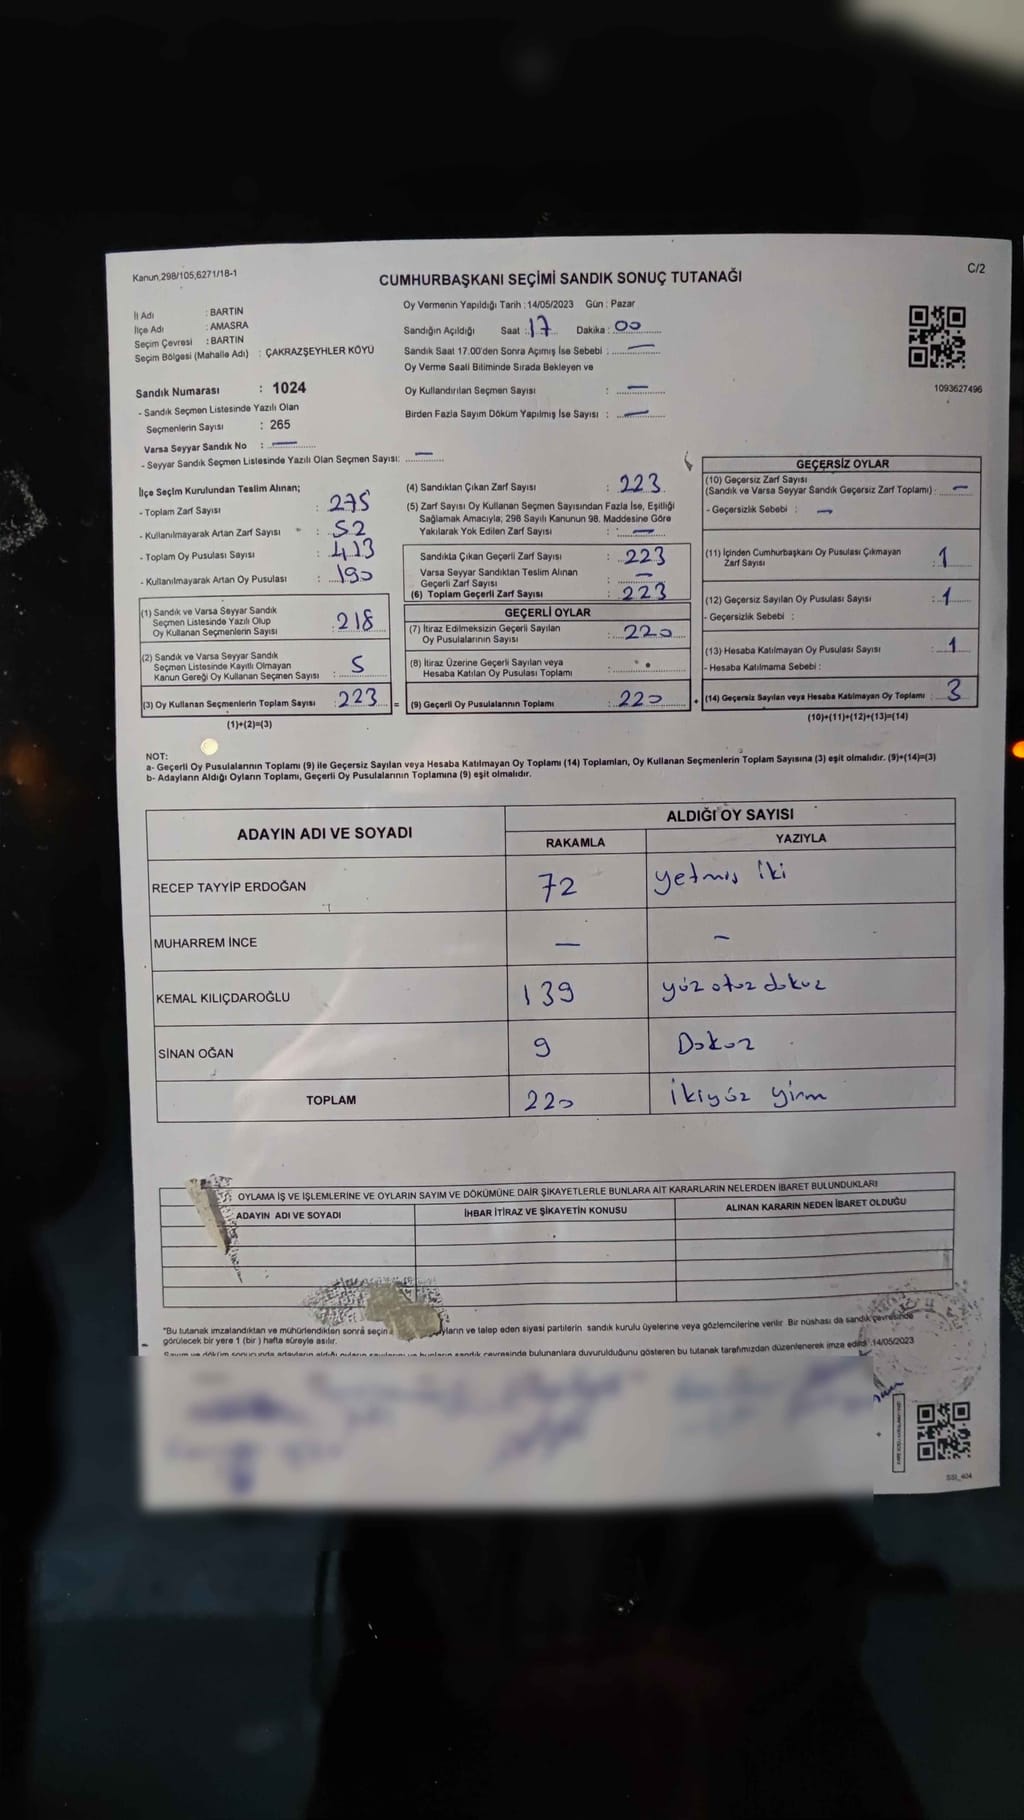 Kanun,298/105,6271/18-1
C/2
CUMHURBAŞKANI SEÇİMİ SANDIK SONUÇ TUTANAĞI
İl Adı : BARTIN
İlçe Adı : AMASRA
Seçim Çevresi : BARTIN
Seçim Bölgesi (Mahalle Adı) : ÇAKRAZŞEYHLER KÖYÜ
Sandık Numarası : 1024
- Sandık Seçmen Listesinde Yazılı Olan
Seçmenlerin Sayısı : 265
Varsa Seyyar Sandık No : —
- Seyyar Sandık Seçmen Listesinde Yazılı Olan Seçmen Sayısı: —
Oy Vermenin Yapıldığı Tarih : 14/05/2023 Gün : Pazar
Sandığın Açıldığı Saat : 17 Dakika : 00
Sandık Saat 17.00'den Sonra Açımış İse Sebebi : —
Oy Verme Saati Bitiminde Sırada Bekleyen ve
Oy Kullandırılan Seçmen Sayısı : —
Birden Fazla Sayım Döküm Yapılmış İse Sayısı : —
1093627496
İlçe Seçim Kurulundan Teslim Alınan;
- Toplam Zarf Sayısı : 275
- Kullanılmayarak Artan Zarf Sayısı : 52
- Toplam Oy Pusulası Sayısı : 413
- Kullanılmayarak Artan Oy Pusulası : 190
(1) Sandık ve Varsa Seyyar Sandık
Seçmen Listesinde Yazılı Olup
Oy Kullanan Seçmenlerin Sayısı : 218
(2) Sandık ve Varsa Seyyar Sandık
Seçmen Listesinde Kayıtlı Olmayan
Kanun Gereği Oy Kullanan Seçmen Sayısı : 5
(3) Oy Kullanan Seçmenlerin Toplam Sayısı : 223 =
(1)+(2)=(3)
(4) Sandıktan Çıkan Zarf Sayısı : 223
(5) Zarf Sayısı Oy Kullanan Seçmen Sayısından Fazla İse, Eşitliği
Sağlamak Amacıyla; 298 Sayılı Kanunun 98. Maddesine Göre
Yakılarak Yok Edilen Zarf Sayısı : —
Sandıkta Çıkan Geçerli Zarf Sayısı : 223
Varsa Seyyar Sandıktan Teslim Alınan
Geçerli Zarf Sayısı : —
(6) Toplam Geçerli Zarf Sayısı : 223
GEÇERLİ OYLAR
(7) İtiraz Edilmeksizin Geçerli Sayılan
Oy Pusulalarının Sayısı : 220
(8) İtiraz Üzerine Geçerli Sayılan veya
Hesaba Katılan Oy Pusulası Toplamı :
(9) Geçerli Oy Pusulalarının Toplamı : 220 +
GEÇERSİZ OYLAR
(10) Geçersiz Zarf Sayısı
(Sandık ve Varsa Seyyar Sandık Geçersiz Zarf Toplamı) : —
- Geçersizlik Sebebi : —
(11) İçinden Cumhurbaşkanı Oy Pusulası Çıkmayan
Zarf Sayısı : 1
(12) Geçersiz Sayılan Oy Pusulası Sayısı : 1
- Geçersizlik Sebebi :
(13) Hesaba Katılmayan Oy Pusulası Sayısı : 1
- Hesaba Katılmama Sebebi :
(14) Geçersiz Sayılan veya Hesaba Katılmayan Oy Toplamı : 3
(10)+(11)+(12)+(13)=(14)
NOT:
a- Geçerli Oy Pusulalarının Toplamı (9) ile Geçersiz Sayılan veya Hesaba Katılmayan Oy Toplamı (14) Toplamları, Oy Kullanan Seçmenlerin Toplam Sayısına (3) eşit olmalıdır. (9)+(14)=(3)
b- Adayların Aldığı Oyların Toplamı, Geçerli Oy Pusulalarının Toplamına (9) eşit olmalıdır.
ADAYIN ADI VE SOYADI
ALDIĞI OY SAYISI
RAKAMLA YAZIYLA
RECEP TAYYİP ERDOĞAN 72 yetmiş iki
MUHARREM İNCE — —
KEMAL KILIÇDAROĞLU 139 yüz otuz dokuz
SİNAN OĞAN 9 Dokuz
TOPLAM 220 İkiyüz yirm
OYLAMA İŞ VE İŞLEMLERİNE VE OYLARIN SAYIM VE DÖKÜMÜNE DAİR ŞİKAYETLERLE BUNLARA AİT KARARLARIN NELERDEN İBARET BULUNDUKLARI
ADAYIN ADI VE SOYADI İHBAR İTİRAZ VE ŞİKAYETİN KONUSU ALINAN KARARIN NEDEN İBARET OLDUĞU
"Bu tutanak imzalandıktan ve mühürlendikten sonra seçin yların ve talep eden siyasi partilerin sandık kurulu üyelerine veya gözlemcilerine verilir. Bir nüshası da sandık çevresinde
görülecek bir yere 1 (bir ) hafta süreyle asılır.
Sayım ve döküm sonucunda adayların aldığı oyların sayılarını ve bunların sandık çevresinde bulunanlara duyurulduğunu gösteren bu tutanak tarafımızdan düzenlenerek imza edildi. 14/05/2023
SSI_404